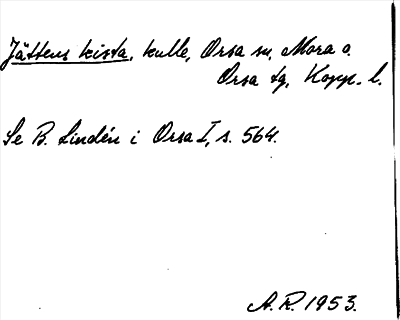 Jättens kista, kulle, Orsa sn, Mora o.
Orsa tg, Kopp. l.
Se B. Lindén i Orsa I, s. 564.
A. R. 1953.